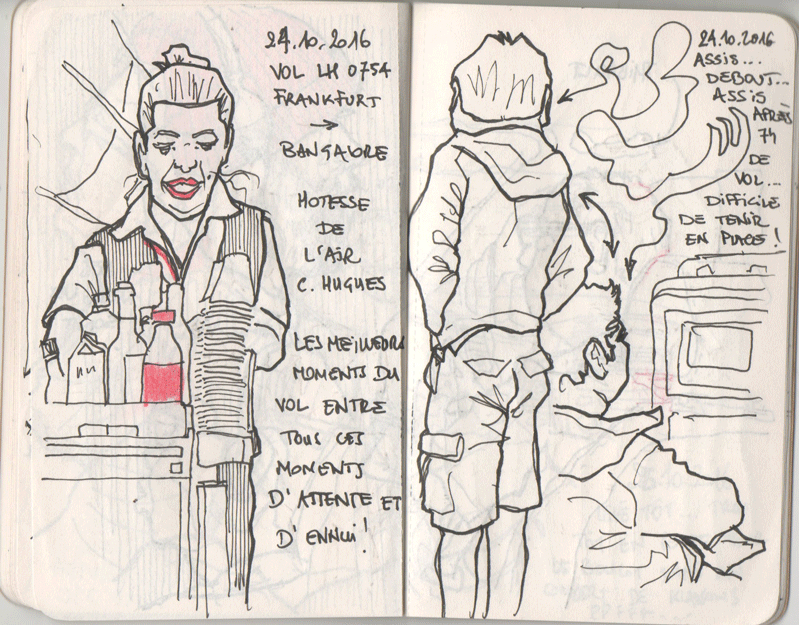 24.10.2016
VOL LH 0754
FRANKFURT
→
BANGALORE
HOTESSE
DE
L'AIR
C. HUGUES
LES MEILLEURS
MOMENTS DU
VOL ENTRE
TOUS CES
MOMENTS
D'ATTENTE ET
D'ENNUI!
24.10.2016
ASSIS...
DEBOUT...
ASSIS
APRÈS
7H
DE
VOL...
DIFFICILE
DE TENIR
EN PLACE!